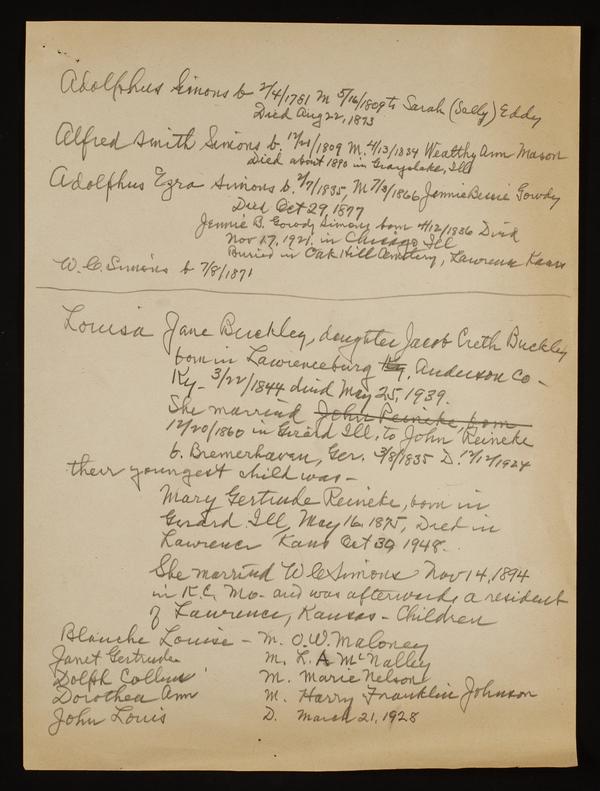 Adolphus Simons b 2/4/1781 M 5/16/1809 to Sarah (Sally) Eddy
Died Aug 22, 1873
Alfred Smith Simons b. 12/25/1809 M. 4/13/1834 Wealthy Ann Mason
Died about 1890 in Grayslake, Ill
Adolphus Ezra Simons b. 2/7/1835, M 7/3/1866 Jennie Bessie Gowdy
Died Oct 29, 1877
Jennie B. Gowdy Simons born 4/12/1836 Died
Nov 17, 1921. in Chicago Ill
Buried in Oak Hill Cemetery, Lawrence Kans
W.C. Simons b 7/8/1871
Louisa Jane Buckley, daughter Jacob Creth Buckley
born in Lawrenceburg Ky, Anderson Co -
Ky - 3/22/1844 died May 25, 1939.
She married John Reineke, born
12/20/1860 in Girard Ill, to John Reineke
b. Bremerhaven, Ger. 3/8/1835 D. 12/12/1924
their youngest child was -
Mary Gertrude Reineke, born in
Girard Ill, May 16 1875, Died in
Lawrence Kans Oct 30 1948.
She married W C Simons Nov 14, 1894
in K.C. Mo - and was afterwards a resident
of Lawrence, Kansas - Children
Blanche Louise - M. O.W. Maloney
Janet Gertrude M. L. A McNalley
Dolph Collins M. Marie Nelson
Dorothea Ann M. Harry Franklin Johnson
John Louis D. March 21, 1928